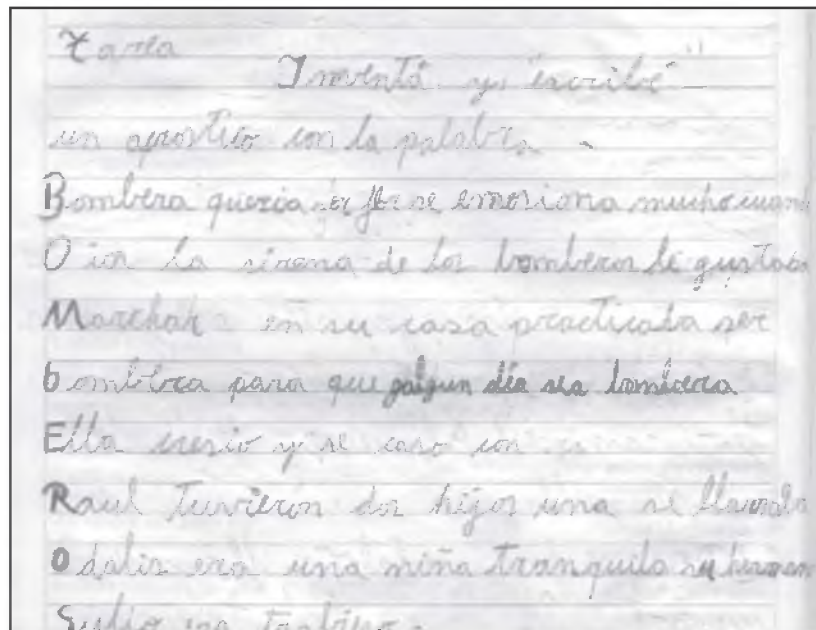 Tarea
Inventá y "escribe"
un acrostico con la palabra
Bombera queria ser flor se emosiona mucho cuand
Oior la sirena de los bomberos le gustaba
Marchar en su casa practicaba ser
bombera para que algun día sea bombera
Ella cresio y se caso con
Raul tuvieron dos hijos una se llamaba
Odalis era una niña tranquila su herman
era